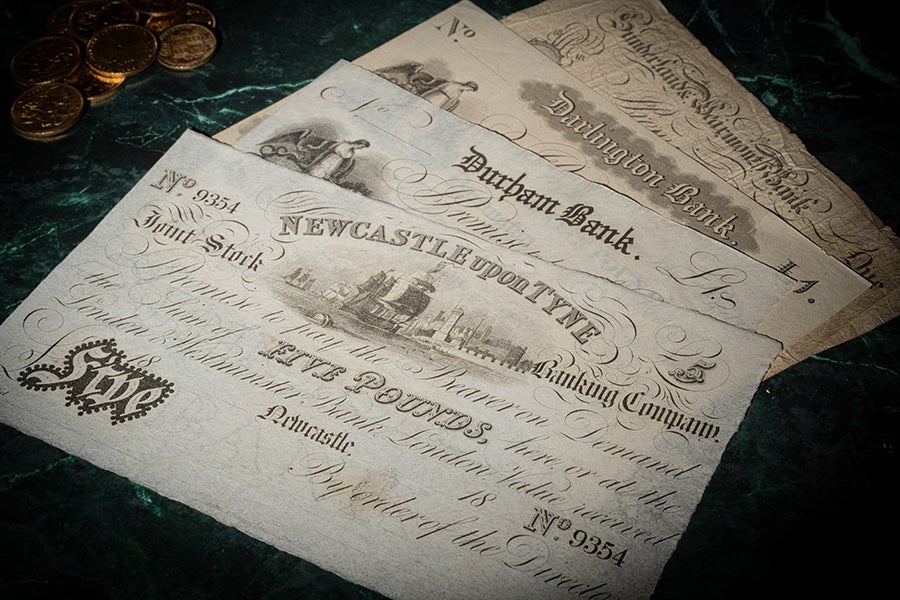 Nº 9354
NEWCASTLE upon TYNE
Joint Stock
Banking Company.
£5
Promise to pay the Bearer on Demand
the Sum of FIVE POUNDS, here, or at the
London & Westminster Bank London Value received
Five
18
Newcastle,
18
By order of the Directo
Nº 9354
Nº
Durham Bank.
Promise
Nº
Darlington Bank.
Sunderland & Wearmouth Bank